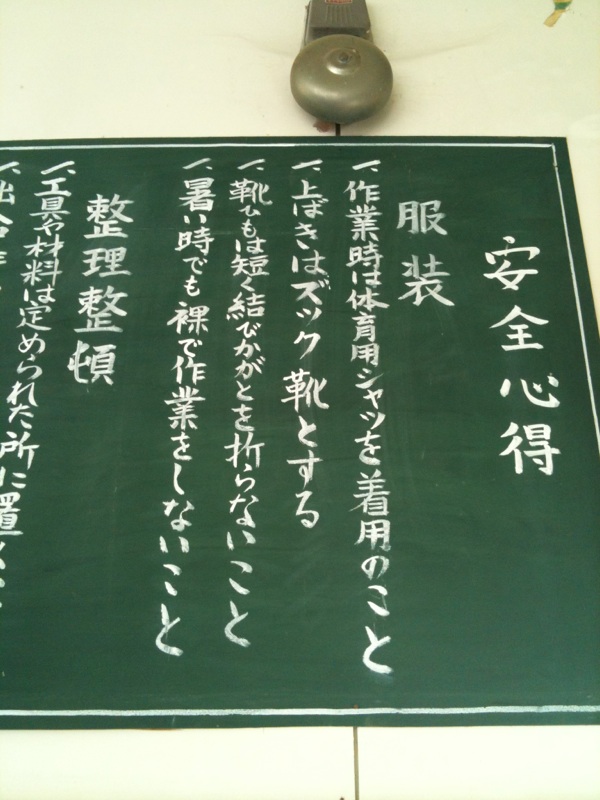 安全心得
服装
一、作業時は体育用シャツを着用のこと
一、上ばきはズック靴とする
一、靴ひもは短く結びかがとを折らないこと
一、暑い時でも裸で作業をしないこと
整理整頓
一、工具や材料は定められた所に置く